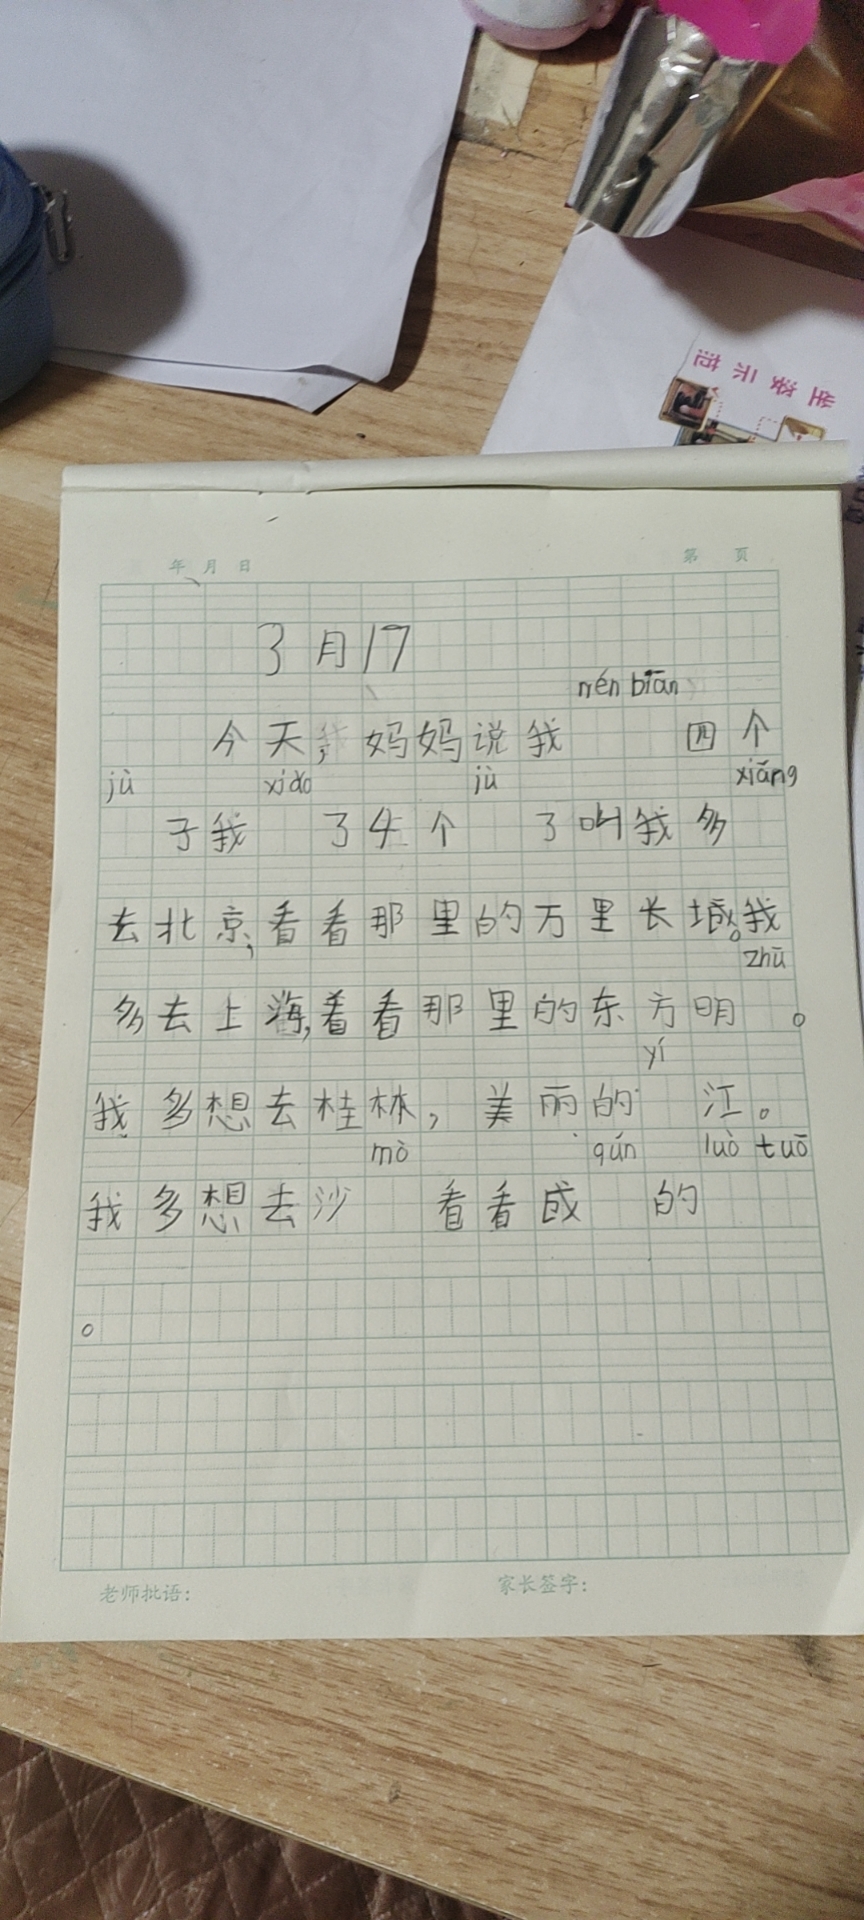 年 月 日 第 页
3月17
nén biān
今天,妈妈说我 四个
jù xiǎo jù xiǎng
子我 了4个 了叫我多
去北京,看看那里的万里长城。我
zhū
多去上海,看看那里的东方明 。
yí
我多想去桂林,美丽的 江。
mò qún luò tuō
我多想去沙 看看成 的
。
老师批语: 家长签字: